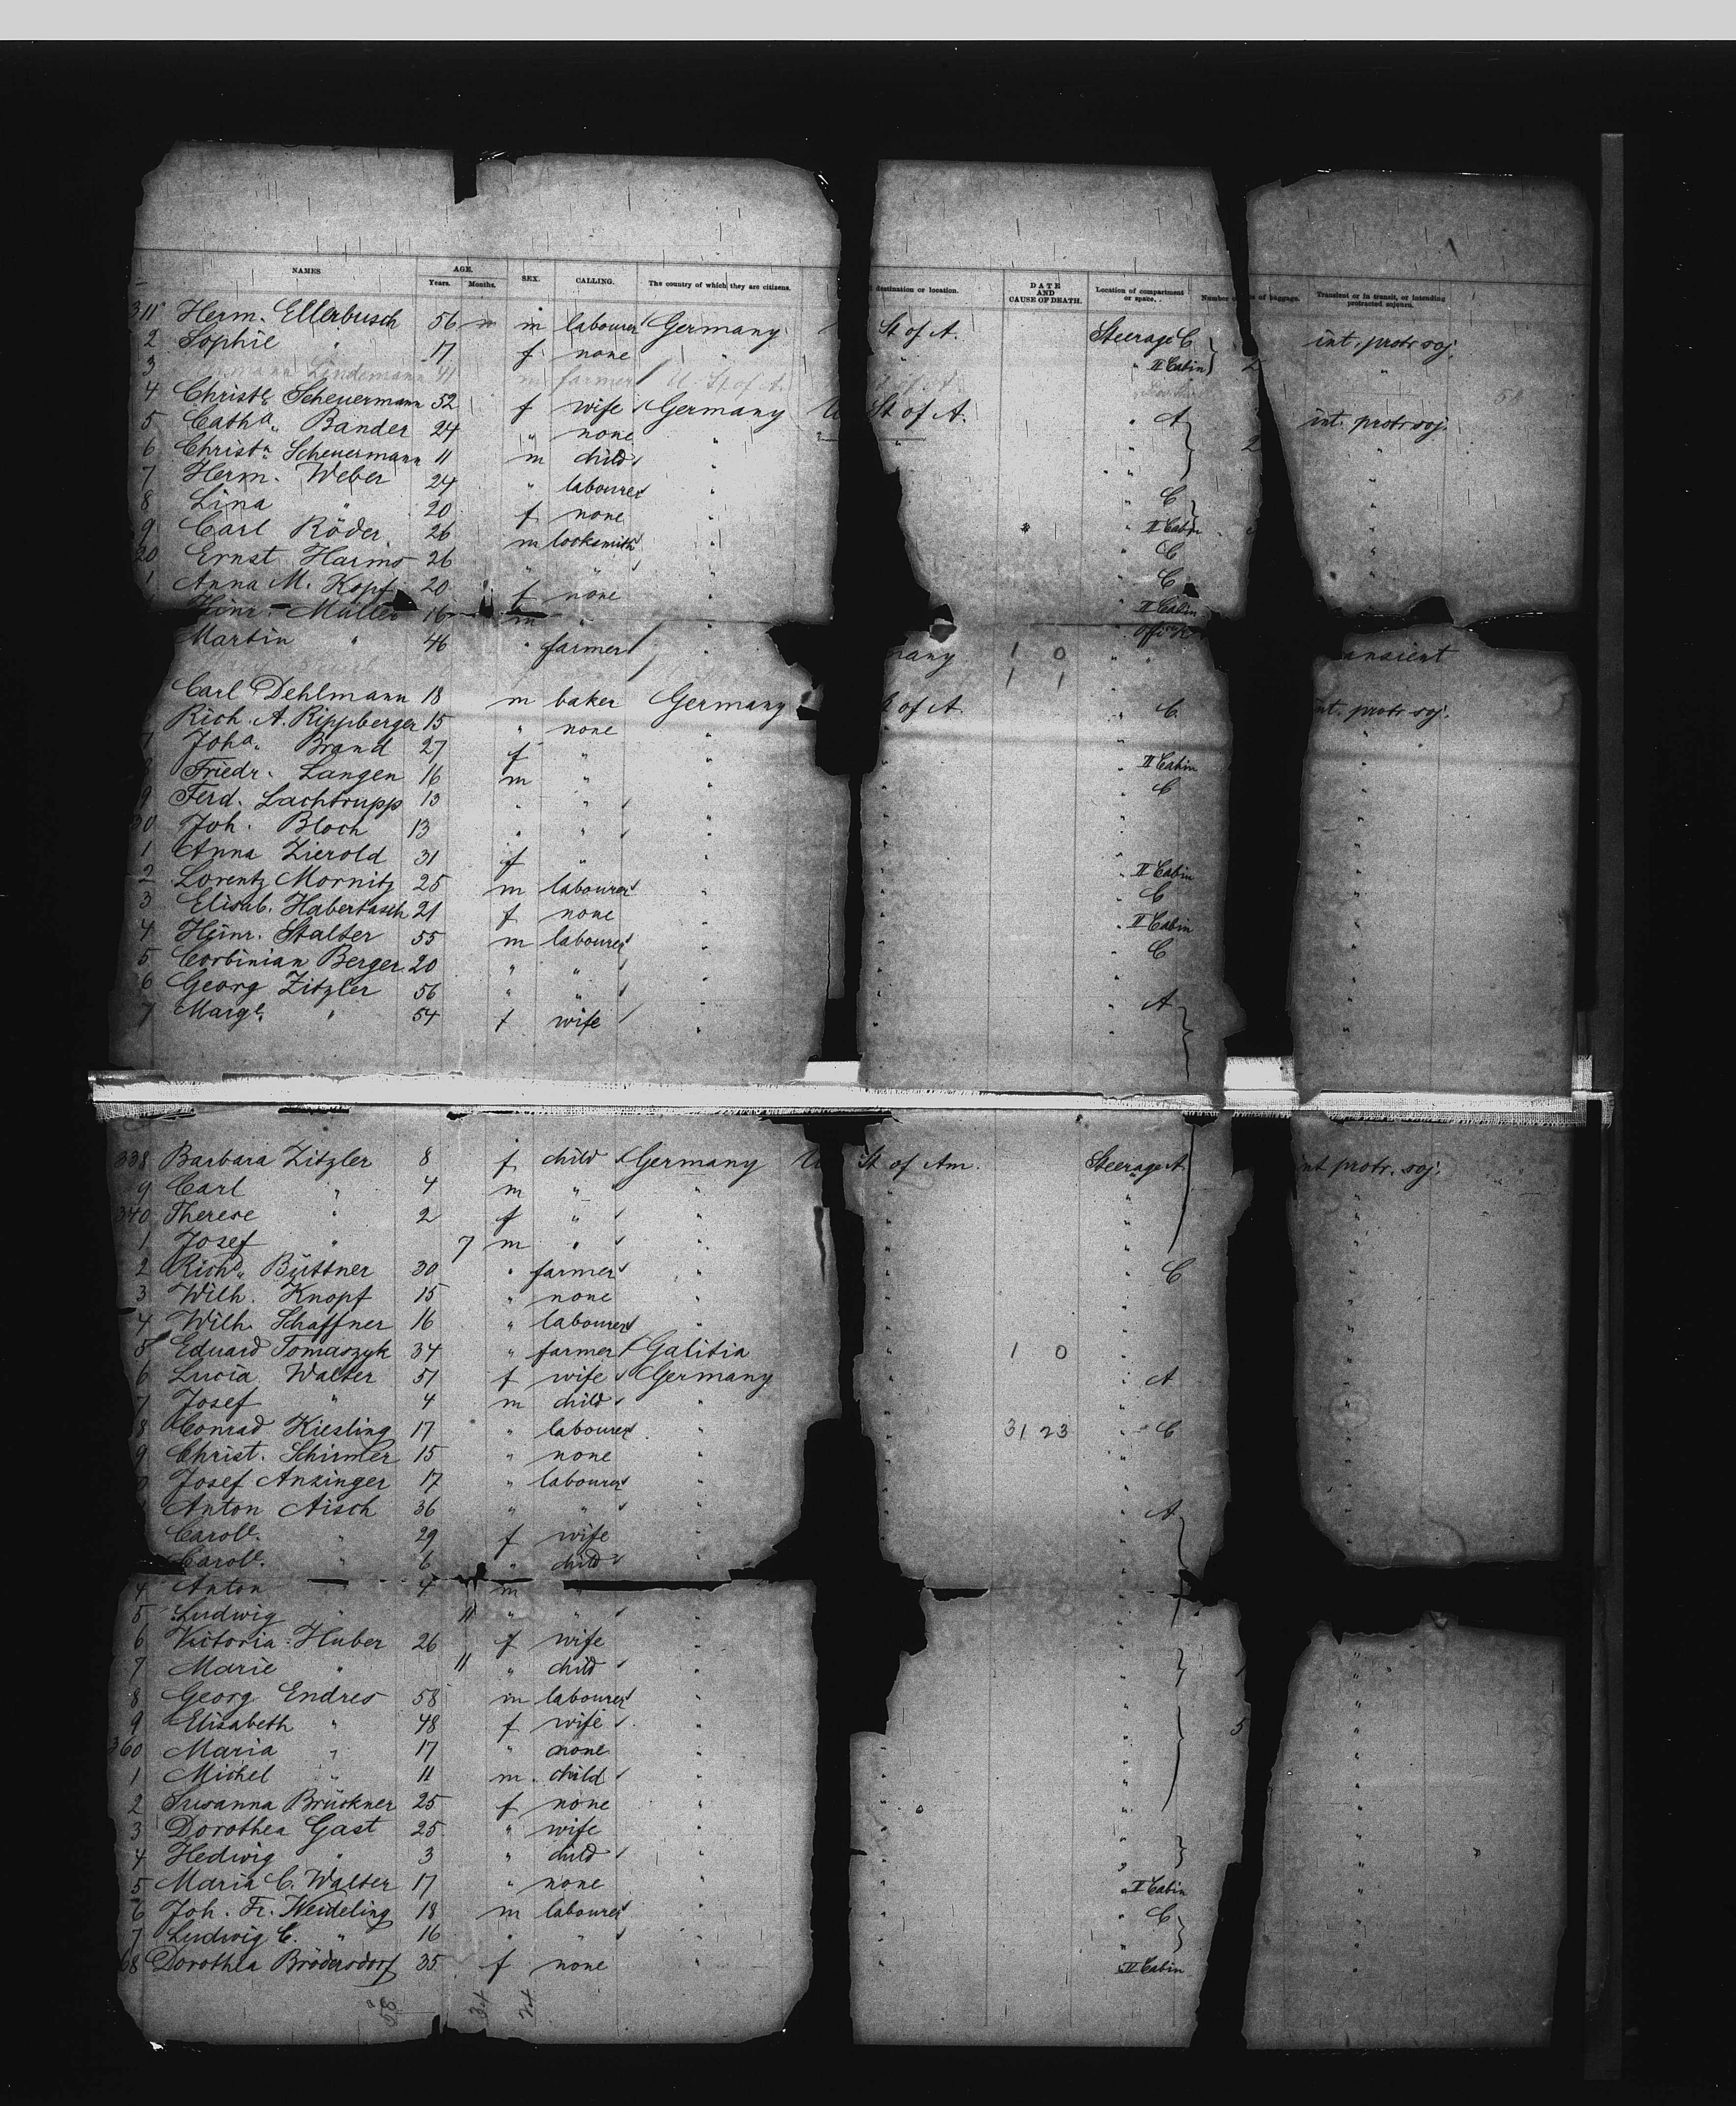 NAMES AGE. SEX. CALLING. The country of which they are citizens. destination or location. DATE AND CAUSE OF DEATH. Location of compartment or space. Number of baggage. Transient or in transit, or intending protracted sojourn.
Years. Months.
311 Herm. Ellerbusch 56 m labourer Germany St of A. Steerage C int. protr soj.
2 Sophie " 17 f none " " II Cabin 2 "
3 Lindemann 41 m farmer U. St of A.
4 Christe. Scheuermann 52 f wife Germany U St of A. " A int. protr soj.
5 Catha. Bander 24 " none " " 2 "
6 Christn. Scheuermann 11 m child " " "
7 Herm. Weber 24 " labourer " " C "
8 Lina " 20 f none " " II Cabin "
9 Carl Röder 26 m locksmith " " C "
20 Ernst Harms 26 " " " " C "
1 Anna M. Kopf 20 f none " II Cabin
Hinr. Müller 16 m "
Martin " 46 " farmer " many 1 0 " ansient
1 1
Carl Dehlmann 18 m baker Germany of A " C int. protr soj.
Rich. A. Rippberger 15 " none " " " "
7 Joha. Brand 27 f " " " II Cabin "
8 Friedr. Langen 16 m " " " C "
9 Ferd. Lachtrupp 13 " " " " " "
30 Joh. Bloch 13 " " " " " "
1 Anna Zierold 31 f " " " II Cabin "
2 Lorentz Mornitz 25 m labourer " " C "
3 Elisab. Habertasch 21 f none " " II Cabin "
4 Heinr. Stalter 55 m labourer " " C "
5 Corbinian Berger 20 " " " " " "
6 Georg Zitzler 56 " " " " A "
7 Marge. " 54 f wife " " " "
338 Barbara Zitzler 8 f child Germany U St of Am. Steerage A int protr. soj.
9 Carl " 4 m " " " " "
340 Therese " 2 f " " " " "
1 Josef " 7 m " " " " "
2 Richd. Büttner 30 " farmer " " C "
3 Wilh. Knopf 15 " none " " " "
4 Wilh. Schaffner 16 " labourer " " " "
5 Eduard Tomaszyk 34 " farmer Galitia " 1 0 " "
6 Lucia Walter 51 f wife Germany " A "
7 Josef " 4 m child " " " "
8 Conrad Kiesling 17 " labourer " " 31 23 " C "
9 Christ. Schirmer 15 " none " " " "
0 Josef Anzinger 17 " labourer " " " "
Anton Aisch 36 " " " " A "
Carole. " 29 f wife " " " "
Carole. " 6 " child "
4 Anton " 4 m "
5 Ludwig " 11 " " " "
6 Victoria Huber 26 f wife " "
7 Marie " 11 " child " " "
8 Georg Endres 58 m labourer " " "
9 Elisabeth " 48 f wife " " 5 "
360 Maria " 17 " none " " " "
1 Michel " 11 m child " " " "
2 Susanna Brückner 25 f none " " " "
3 Dorothea Gast 25 " wife " " " "
4 Hedwig " 3 " child " " " "
5 Maria C. Walter 17 " none " " II Cabin "
6 Joh. Fr. Weideling 18 m labourer " " C "
7 Ludwig C. " 16 " " " " " "
68 Dorothea Brödersdorf 35 f none " " II Cabin "